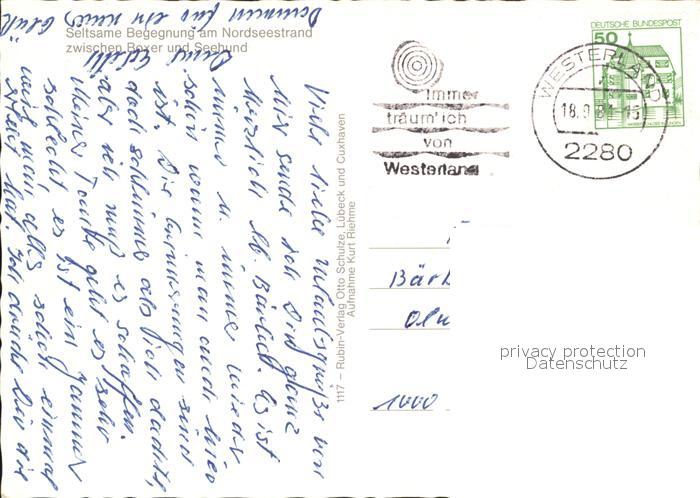 Seltsame Begegnung am Nordseestrand
zwischen Boxer und Seehund
DEUTSCHE BUNDESPOST
50
WESTERLAND
18.9.81-15
2280
Immer
träum' ich
von
Westerland
1117 – Rubin-Verlag Otto Schulze, Lübeck und Cuxhaven
Aufnahme Kurt Riehme
Viele liebe Urlaubsgrüße von
hier sende ich Dir ganz
herzlich lb. Bärbel. Es ist
immer u. immer wieder
schön wenn man auch hier
ist. Die Erinnerungen sind
doch schlimmer als ich dachte,
aber ich muß es schaffen.
Meiner Tante geht es sehr
schlecht es ist ein Jammer
wenn man alles schon einmal
Bär
1000
privacy protection
Datenschutz